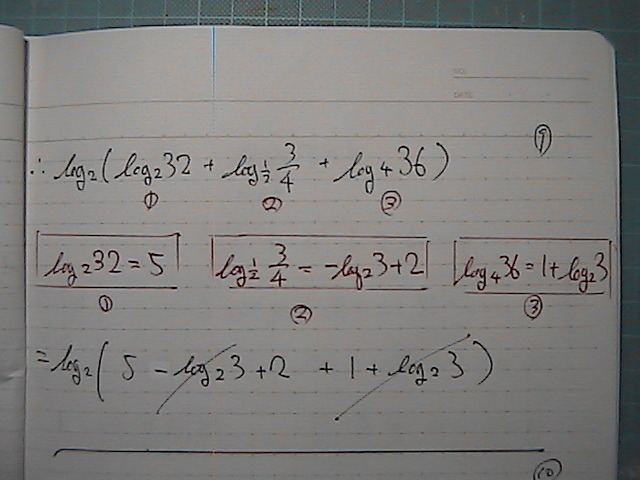 NO.
DATE
⑨
∴ log₂(log₂32 + log½ 3/4 + log₄36)
① ② ③
log₂32 = 5 log½ 3/4 = -log₂3+2 log₄36 = 1+log₂3
① ② ③
= log₂(5 - log₂3 + 2 + 1 + log₂3)
⑩